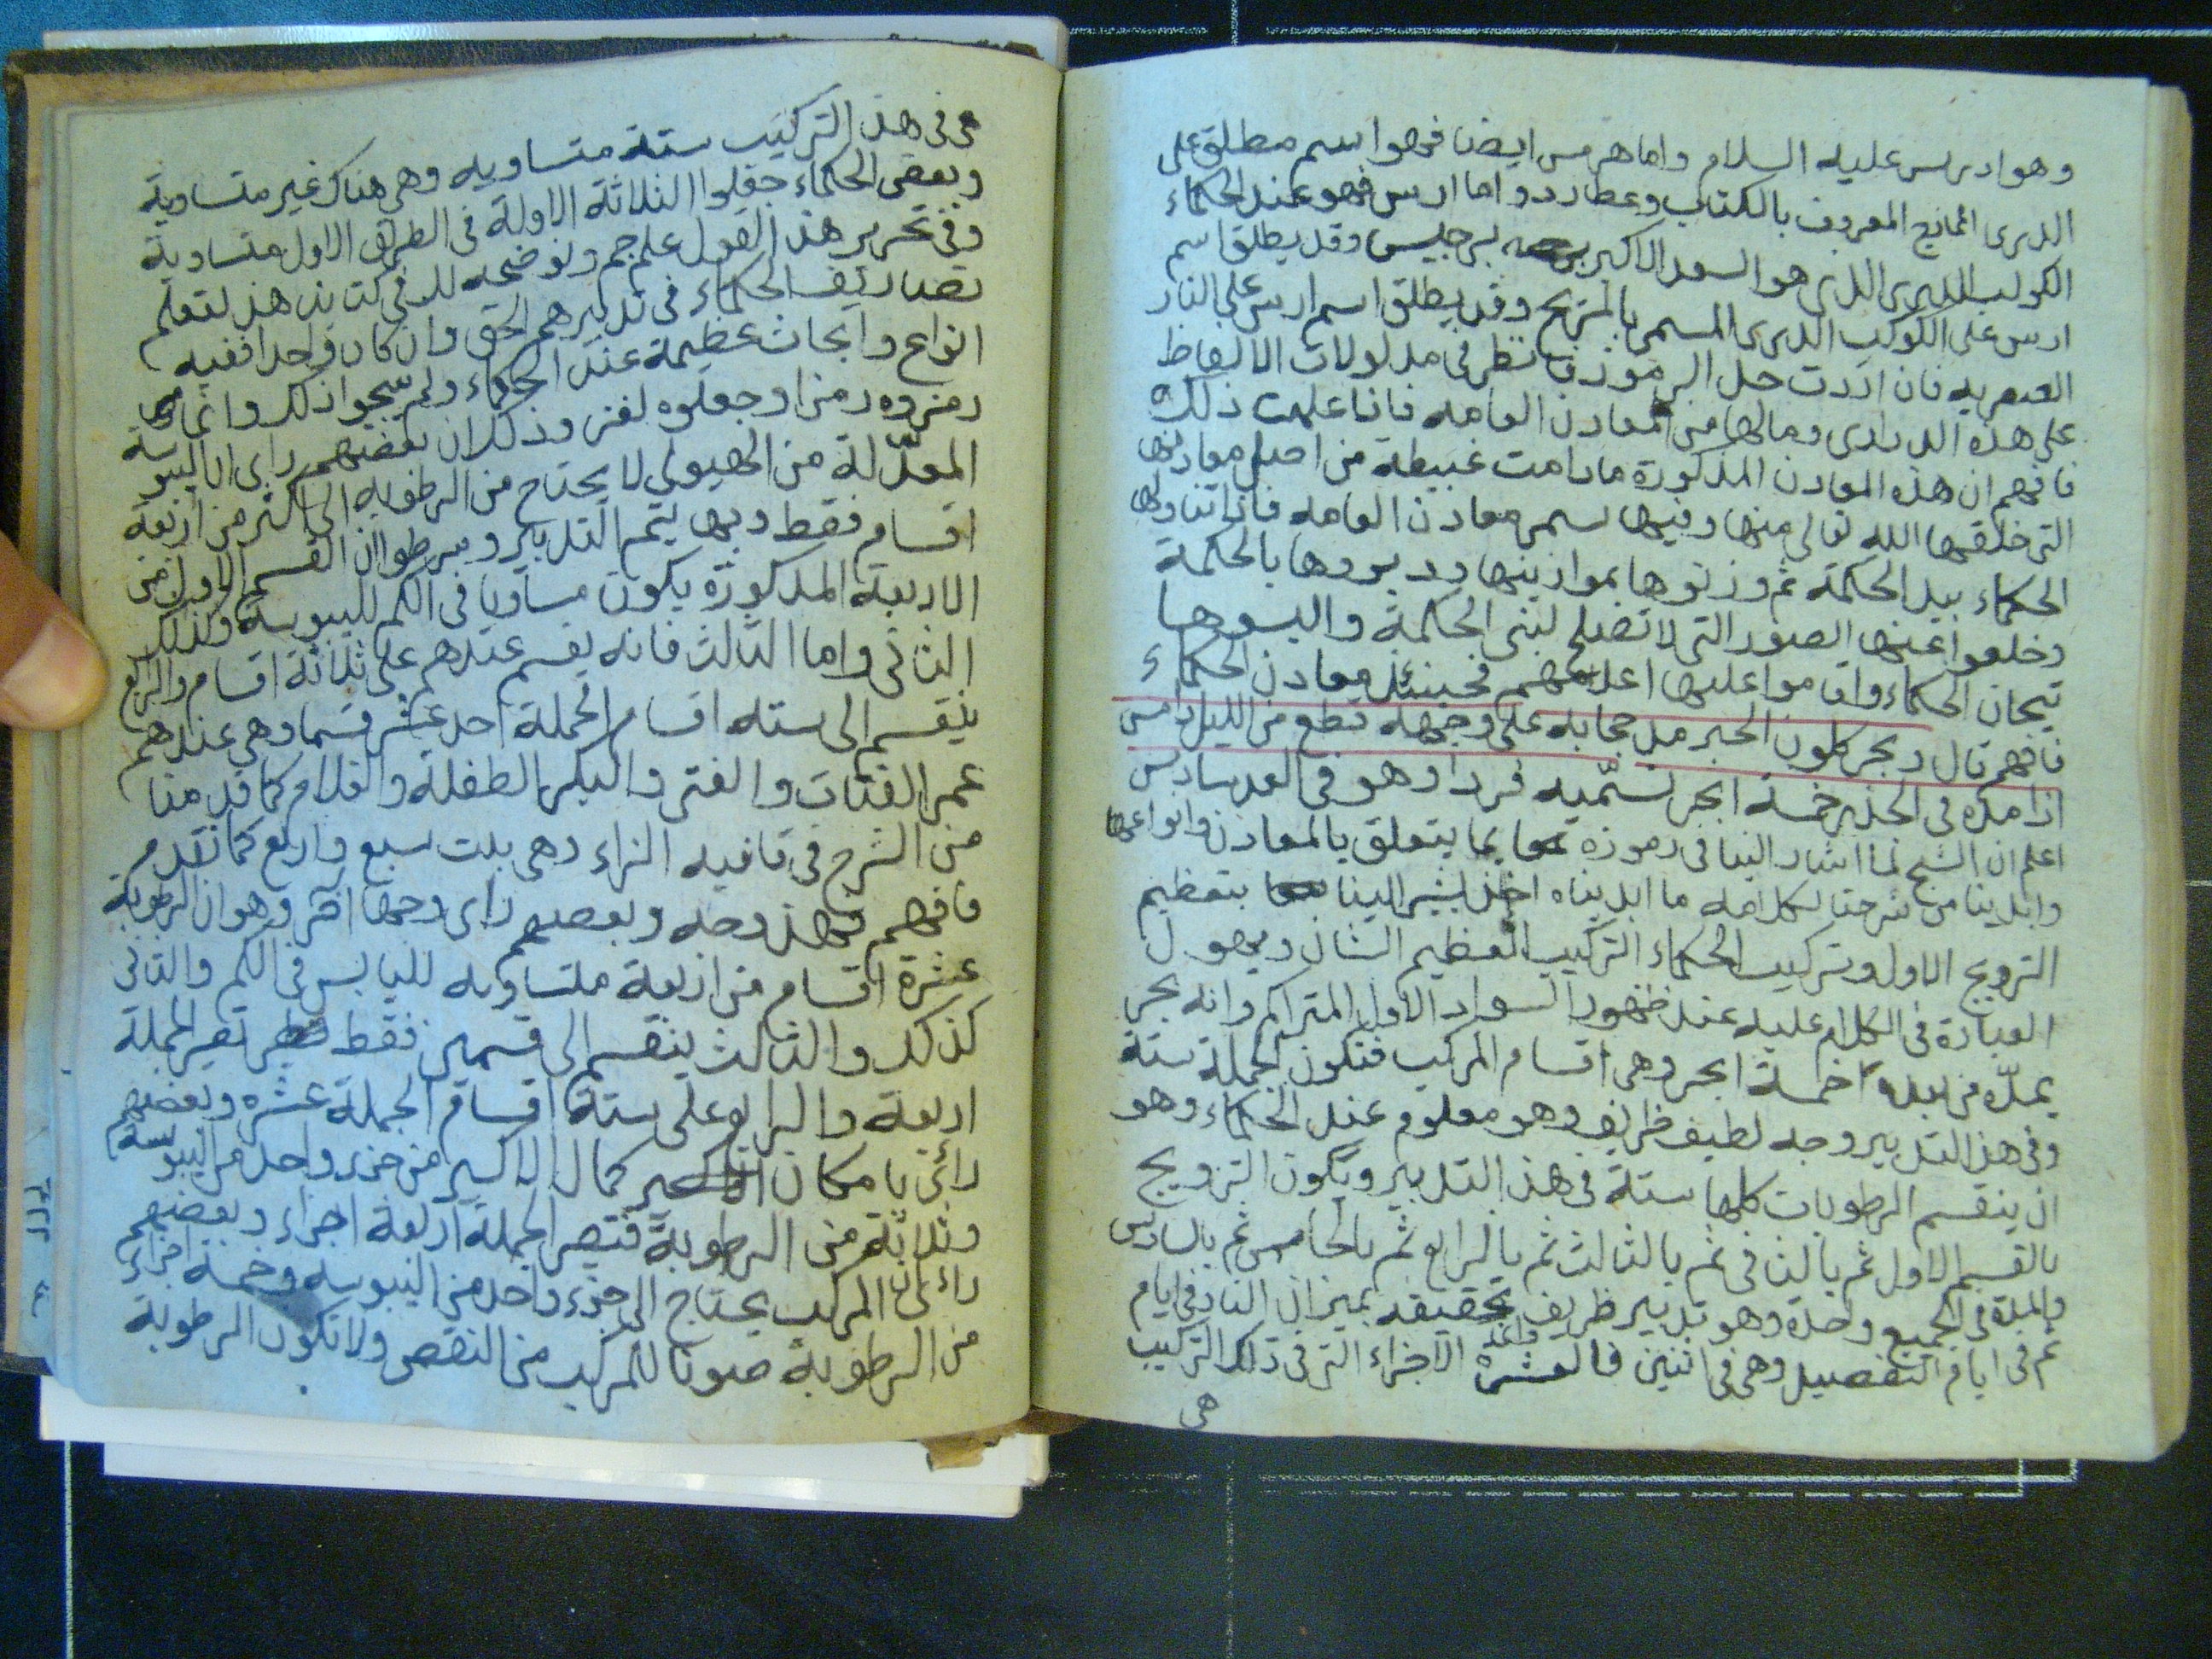 وهو ادريس عليه السلام واما هرمس ايضا فهو اسم مطلق على
الدرى الممازج المعروف بالكتاب وعطارد واما ارس فهو عند الحكماء
الكوكب الدرى الذى هو السعد الاكبر برجيس وقد يطلق اسم
ارس على الكوكب الدرى المسمى بالمريخ وقد يطلق اسم ارس على النار
العنصريه فان اردت حل الرموز فانظر فى مدلولات الالفاظ
على هذه الدرارى ومالها من المعادن العامه فاذا علمت ذلك
فافهم ان هذه المعادن المذكورة مادامت غبيطة من اصل معادنها
التى خلقها الله تعالى منها وفيها تسمى معادن العامه فاذا تناولها
الحكماء بيد الحكمة ثم وزنوها بموازينها ودبروها بالحكمة
وخلعوا عنها الصور التى لا تصلح لبنى الحكمة والبسوها
تيجان الحكماء واقاموا عليها اعلامهم فحينئذ معادن الحكماء
فافهم قال وبحر كلون الحبر مد حجابه على وجهه قطع من الليل دامس
اذا مده فى الجذر خمسة ابحر تسمّيه فردا وهو فى العد سادس
اعلم ان الشيخ لما اشار الينا فى رموزه بما يتعلق بالمعادن وانواعها
وابدينا من شرحنا لكلامه ما ابديناه اخذ يشير الينا بتعظيم
الترويج الاول وتركيب الحكماء التركيب العظيم الشان ويهول
العبارة فى الكلام عليه عند ظهور السواد الاول المتراكم وانه بحر
يمدّه من بعده خمسة ابحر وهى اقسام المركب فتكون الجملة ستة
وفى هذا التدبير وجه لطيف ظريف وهو معلوم عند الحكماء وهو
ان ينقسم الرطوبات كلها ستة فى هذا التدبير ويكون التزويج
بالقسم الاول ثم بالثانى ثم بالثالث ثم بالرابع ثم بالخامس ثم بالسادس
والمدة فى الجميع واحدة وهو تدبير ظريف تحقيقه بميزان النار فى ايام
ثم فى ايام التفصيل وهى فى اثنين فالعشرة الاجزاء التى فى ذلك التركيب
هى
هى فى هذا التركيب ستة متساويه وهى هناك غير متساوية
وبعض الحكماء جعلوا الثلاثة الاولة فى الطريق الاول متساوية
وفى تحرير هذا القول علم جم ونوضحه لك فى كتابنا هذا لتعلم
تصاريف الحكماء فى تدبيرهم الحق وان كان واحدا ففيه
انواع وابحاث عظيمة عند الحكماء ولم يسمحوا بذلك وانما
رمزوه رمزا وجعلوه لغزا وذلك ان بعضهم راى ان اليبوسة
المعدّلة من الهيولى لا يحتاج من الرطوبة الى اكثر من اربعة
اقسام فقط وبها يتم التدبير وشرطوا ان القسم الاول من
الاربعة المذكورة يكون مساويا فى الكم لليبوسة وكذلك
الثانى واما الثالث فانه يقسم عندهم على ثلاثة اقسام والرابع
ينقسم الى ستة اقسام الجملة احد عشر قسما وهى عندهم
عمر الفتات والفتى والبكر الطفلة والغلام كما قدمنا
من الشرح فى قافيه الزاء وهى بنت سبع واربع كما تقدم
فافهم فهذا وجه وبعضهم راى وجها اخر وهو ان الرطوبة
عشرة اقسام من اربعة متساويه لليابس فى الكم والثانى
كذلك والثالث ينقسم الى قسمين فقط تصير الجملة
اربعة والرابع على ستة اقسام الجملة عشره وبعضهم
رائى بامكان كمال الاكسير من جزء واحد من اليبوسة
وثلاثة من الرطوبة فتصير الجملة اربعة اجزاء وبعضهم
رائى ان المركب يحتاج الى جزء واحد من اليبوسه وخمسة اجزاء
من الرطوبة صونا للمركب من النقص ولا تكون الرطوبة